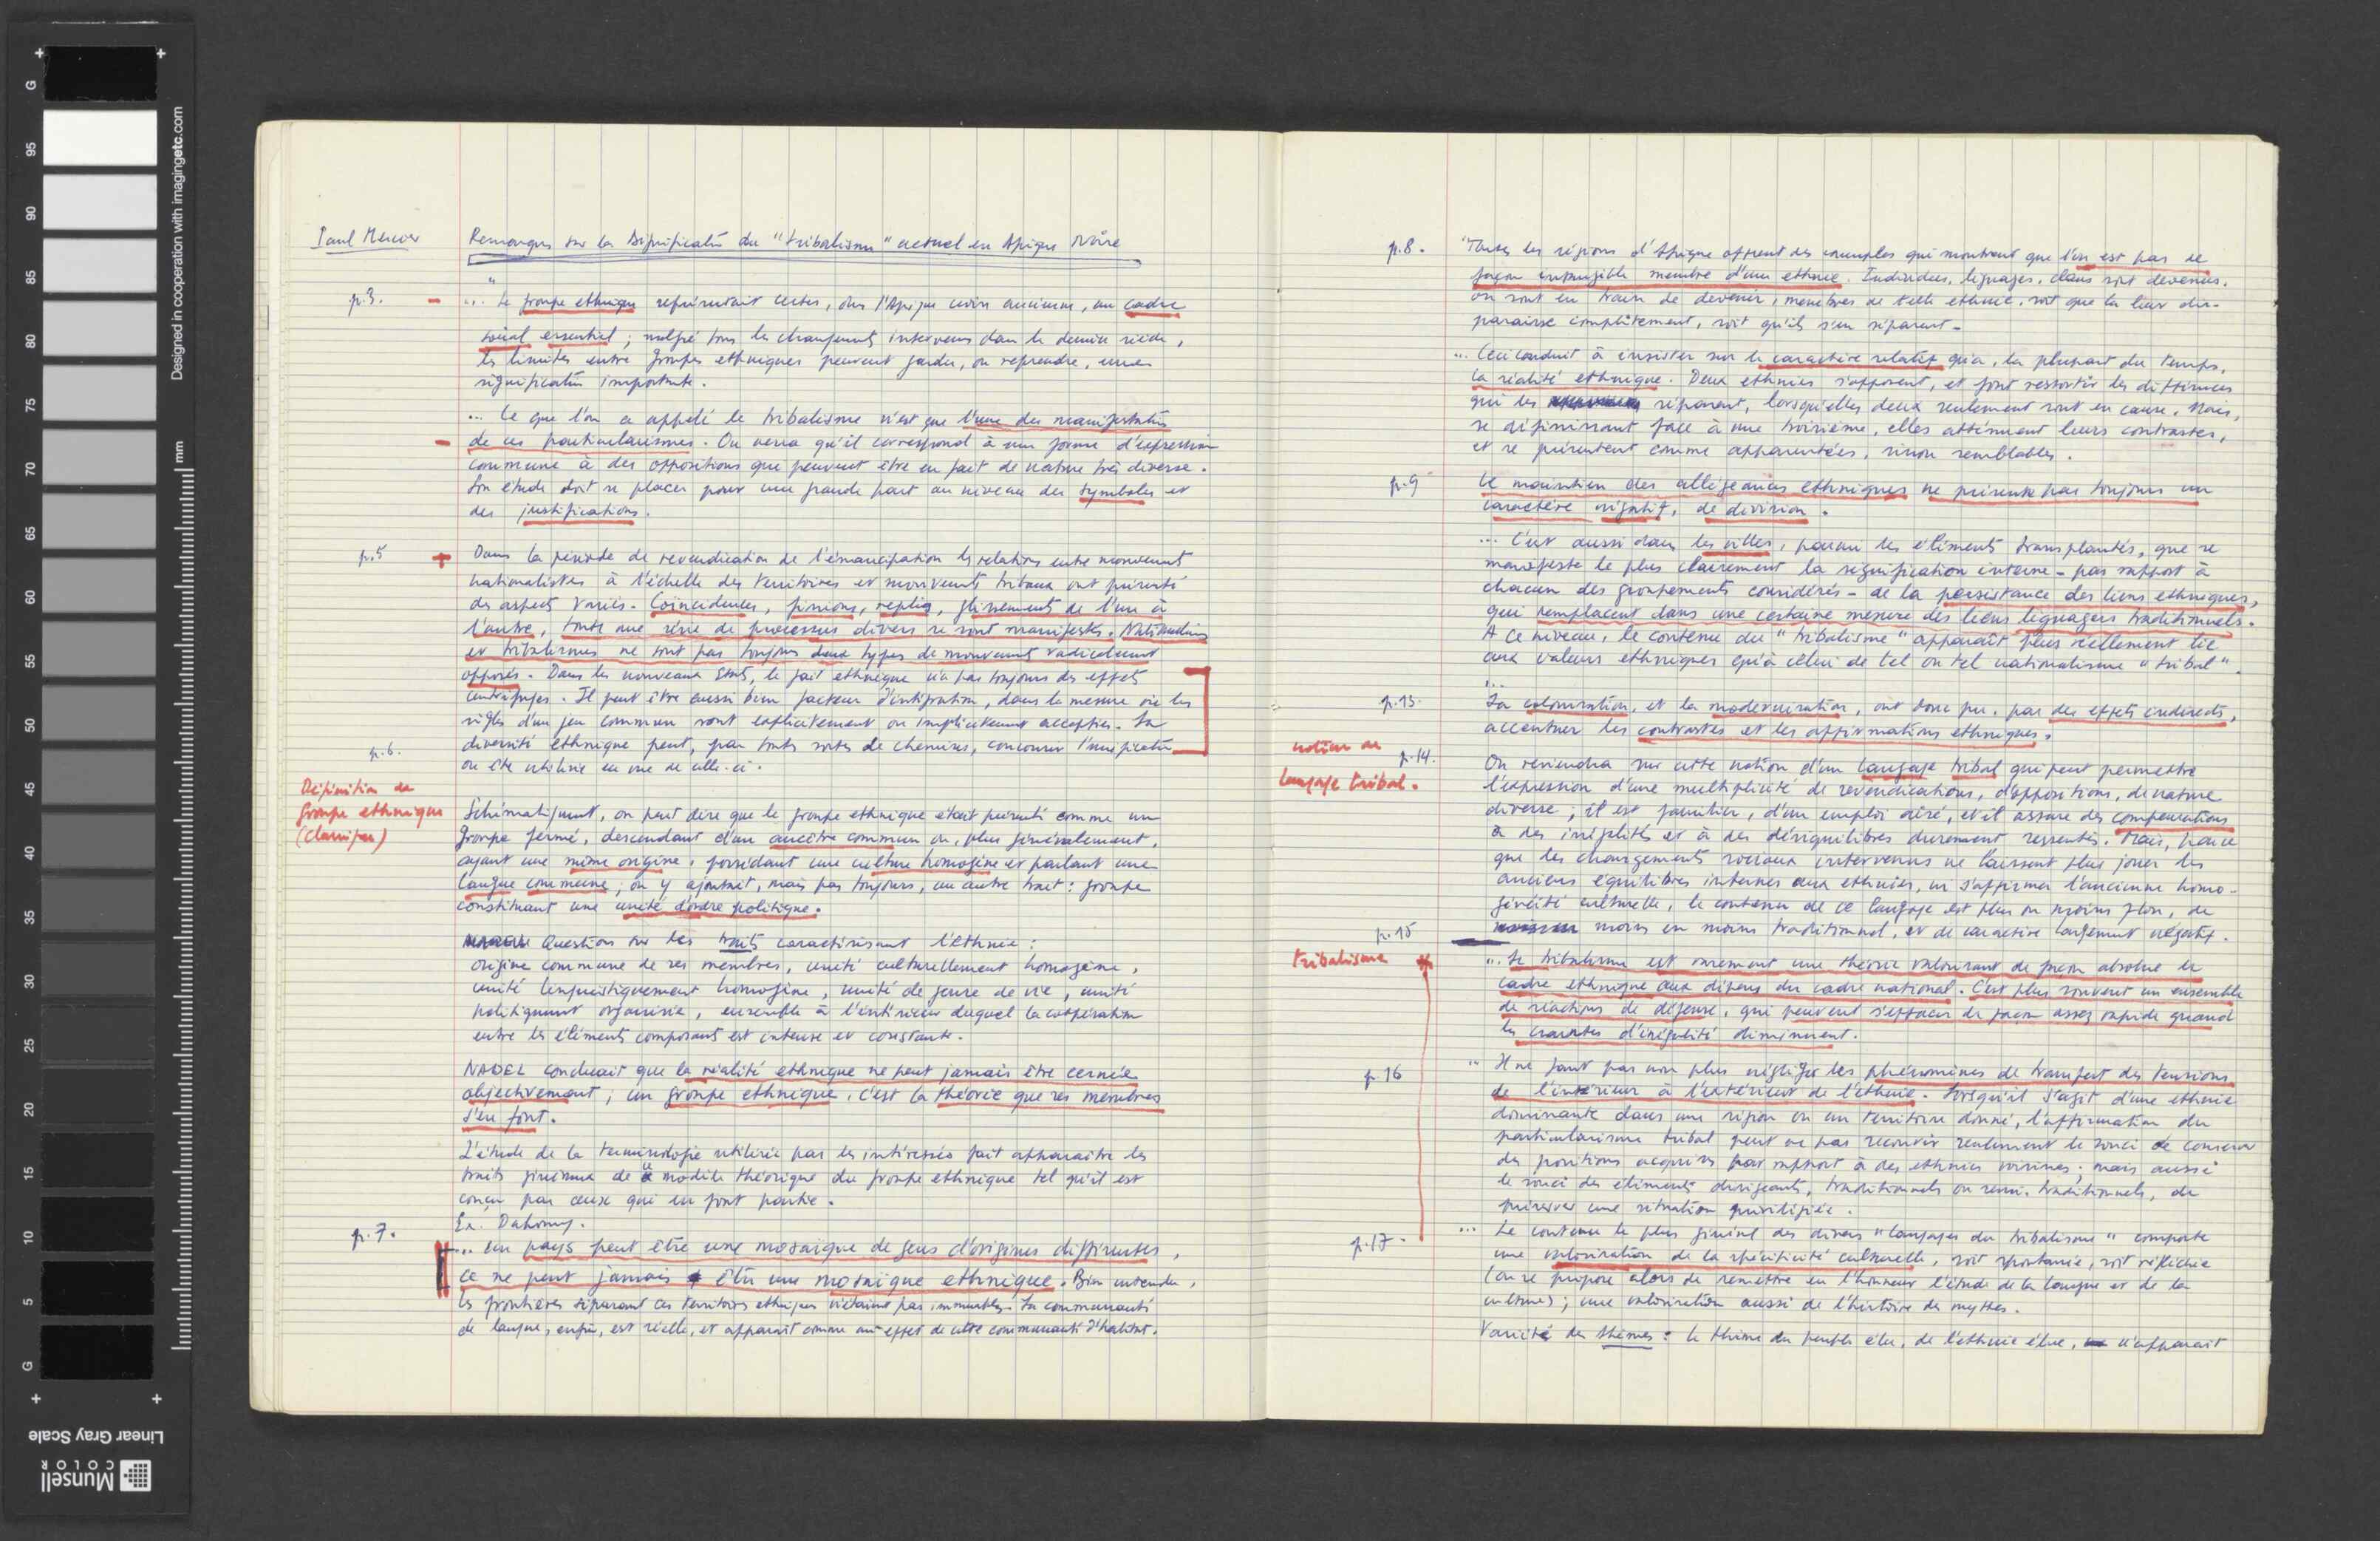 Paul Mercier
Remarques sur la signification du "tribalisme" actuel en Afrique Noire
p.3.
"... Le groupe ethnique représentait certes, dans l'Afrique noire ancienne, un cadre
social essentiel ; malgré tous les changements intervenus dans le dernier siècle,
les limites entre groupes ethniques peuvent garder, ou reprendre, une
signification importante.
... Ce que l'on a appelé le tribalisme n'est que l'une des manifestations
de ces particularismes. On verra qu'il correspond à une forme d'expression
commune à des oppositions que peuvent être en fait de nature très diverse.
Son étude doit se placer pour une grande part au niveau des symboles et
des justifications.
p.5
Dans la période de revendication de l'émancipation les relations entre mouvements
nationalistes à l'échelle des territoires et mouvements tribaux ont présenté
des aspects variés. Coïncidences, fusions, replis, glissements de l'un à
l'autre, toute une série de processus divers se sont manifestés. Nationalismes
et tribalismes ne sont pas toujours deux types de mouvements radicalement
opposés. Dans les nouveaux États, le fait ethnique n'a pas toujours des effets
centrifuges. Il peut être aussi bien facteur d'intégration, dans la mesure où les
règles d'un jeu commun sont explicitement ou implicitement acceptées. La
p.6.
diversité ethnique peut, par toutes sortes de chemins, concourir l'unification
ou être utilisée en vue de celle-ci.
Définition de
groupe ethnique
(classique)
Schématiquement, on peut dire que le groupe ethnique était présenté comme un
groupe fermé, descendant d'un ancêtre commun ou, plus généralement,
ayant une même origine, possédant une culture homogène et parlant une
langue commune ; on y ajoutait, mais pas toujours, un autre trait : groupe
constituant une unité d'ordre politique.
Question sur les traits caractérisant l'ethnie :
origine commune de ses membres, unité culturellement homogène,
unité linguistiquement homogène, unité de genre de vie, unité
politiquement organisée, ensemble à l'intérieur duquel la coopération
entre les éléments composants est intense et constante.
NADEL concluait que la réalité ethnique ne peut jamais être cernée
objectivement ; un groupe ethnique, c'est la théorie que ses membres
s'en font.
L'étude de la terminologie utilisée par les intéressés fait apparaître les
traits généraux de ce modèle théorique du groupe ethnique tel qu'il est
conçu par ceux qui en font partie.
Ex. Dahomey.
p.7.
... un pays peut être une mosaïque de gens d'origines différentes,
ce ne peut jamais être une mosaïque ethnique. Bien entendu,
les frontières séparant ces territoires ethniques n'étaient pas immuables. La communauté
de langue, enfin, est réelle, et apparaît comme un effet de cette communauté d'habitat.
p.8.
"Toutes les régions d'Afrique offrent des exemples qui montrent que l'on est pas de
façon intangible membre d'une ethnie. Individus, lignages, clans sont devenus,
ou sont en train de devenir, membres de telle ethnie, soit que la leur dis-
paraisse complètement, soit qu'ils s'en séparent.
... Ceci conduit à insister sur le caractère relatif qu'a, la plupart du temps,
la réalité ethnique. Deux ethnies s'opposent, et font ressortir les différences
qui les séparent, lorsqu'elles deux seulement sont en cause. Mais,
se définissant face à une troisième, elles atténuent leurs contrastes,
et se présentent comme apparentées, sinon semblables.
p.9
Le maintien des allégeances ethniques ne présente pas toujours un
caractère négatif, de division.
... C'est aussi dans les villes, parmi les éléments transplantés, que se
manifeste le plus clairement la signification interne – par rapport à
chacun des groupements considérés – de la persistance des liens ethniques,
qui remplacent dans une certaine mesure des liens lignagers traditionnels.
A ce niveau, le contenu du "tribalisme" apparaît plus réellement lié
aux valeurs ethniques qu'à celui de tel ou tel nationalisme "tribal".
...
p.13.
La colonisation, et la modernisation, ont donc pu, par des effets indirects,
accentuer les contrastes et les affirmations ethniques.
notion de
langage tribal.
p.14.
On reviendra sur cette notion d'un langage tribal qui peut permettre
l'expression d'une multiplicité de revendications, d'oppositions, de nature
diverse ; il est familier, d'un emploi aisé, et il assure des compensations
à des inégalités et à des déséquilibres durement ressentis. Mais, parce
que les changements sociaux intervenus ne laissent plus jouer les
anciens équilibres internes aux ethnies, ni s'affirmer l'ancienne homo-
généité culturelle, le contenu de ce langage est plus ou moins flou, de
p.15
moins en moins traditionnel, et de caractère largement négatif.
tribalisme
... Le tribalisme est rarement une théorie valorisant de façon absolue le
cadre ethnique aux dépens du cadre national. C'est plus souvent un ensemble
de réactions de défense, qui peuvent s'effacer de façon assez rapide quand
les craintes d'inégalité diminuent.
p.16
" Il ne faut pas non plus négliger les phénomènes de transfert des tensions
de l'intérieur à l'extérieur de l'ethnie. Lorsqu'il s'agit d'une ethnie
dominante dans une région ou un territoire donné, l'affirmation du
particularisme tribal peut ne pas recouvrir seulement le souci de conserver
des positions acquises par rapport à des ethnies voisines ; mais aussi
le souci des éléments dirigeants, traditionnels ou semi-traditionnels, de
préserver une situation privilégiée.
p.17.
... Le contenu le plus général des divers "langages du tribalisme" comporte
une valorisation de la spécificité culturelle, soit spontanée, soit réfléchie
(on se propose alors de remettre en l'honneur l'étude de la langue et de la
culture) ; une valorisation aussi de l'histoire des mythes.
Variété des thèmes : le thème du peuple élu, de l'ethnie élue, n'apparaît
Designed in cooperation with imagingetc.com
mm
G
95
90
85
80
75
70
65
60
55
50
45
40
35
30
25
20
15
10
5
G
Linear Gray Scale
Munsell
COLOR